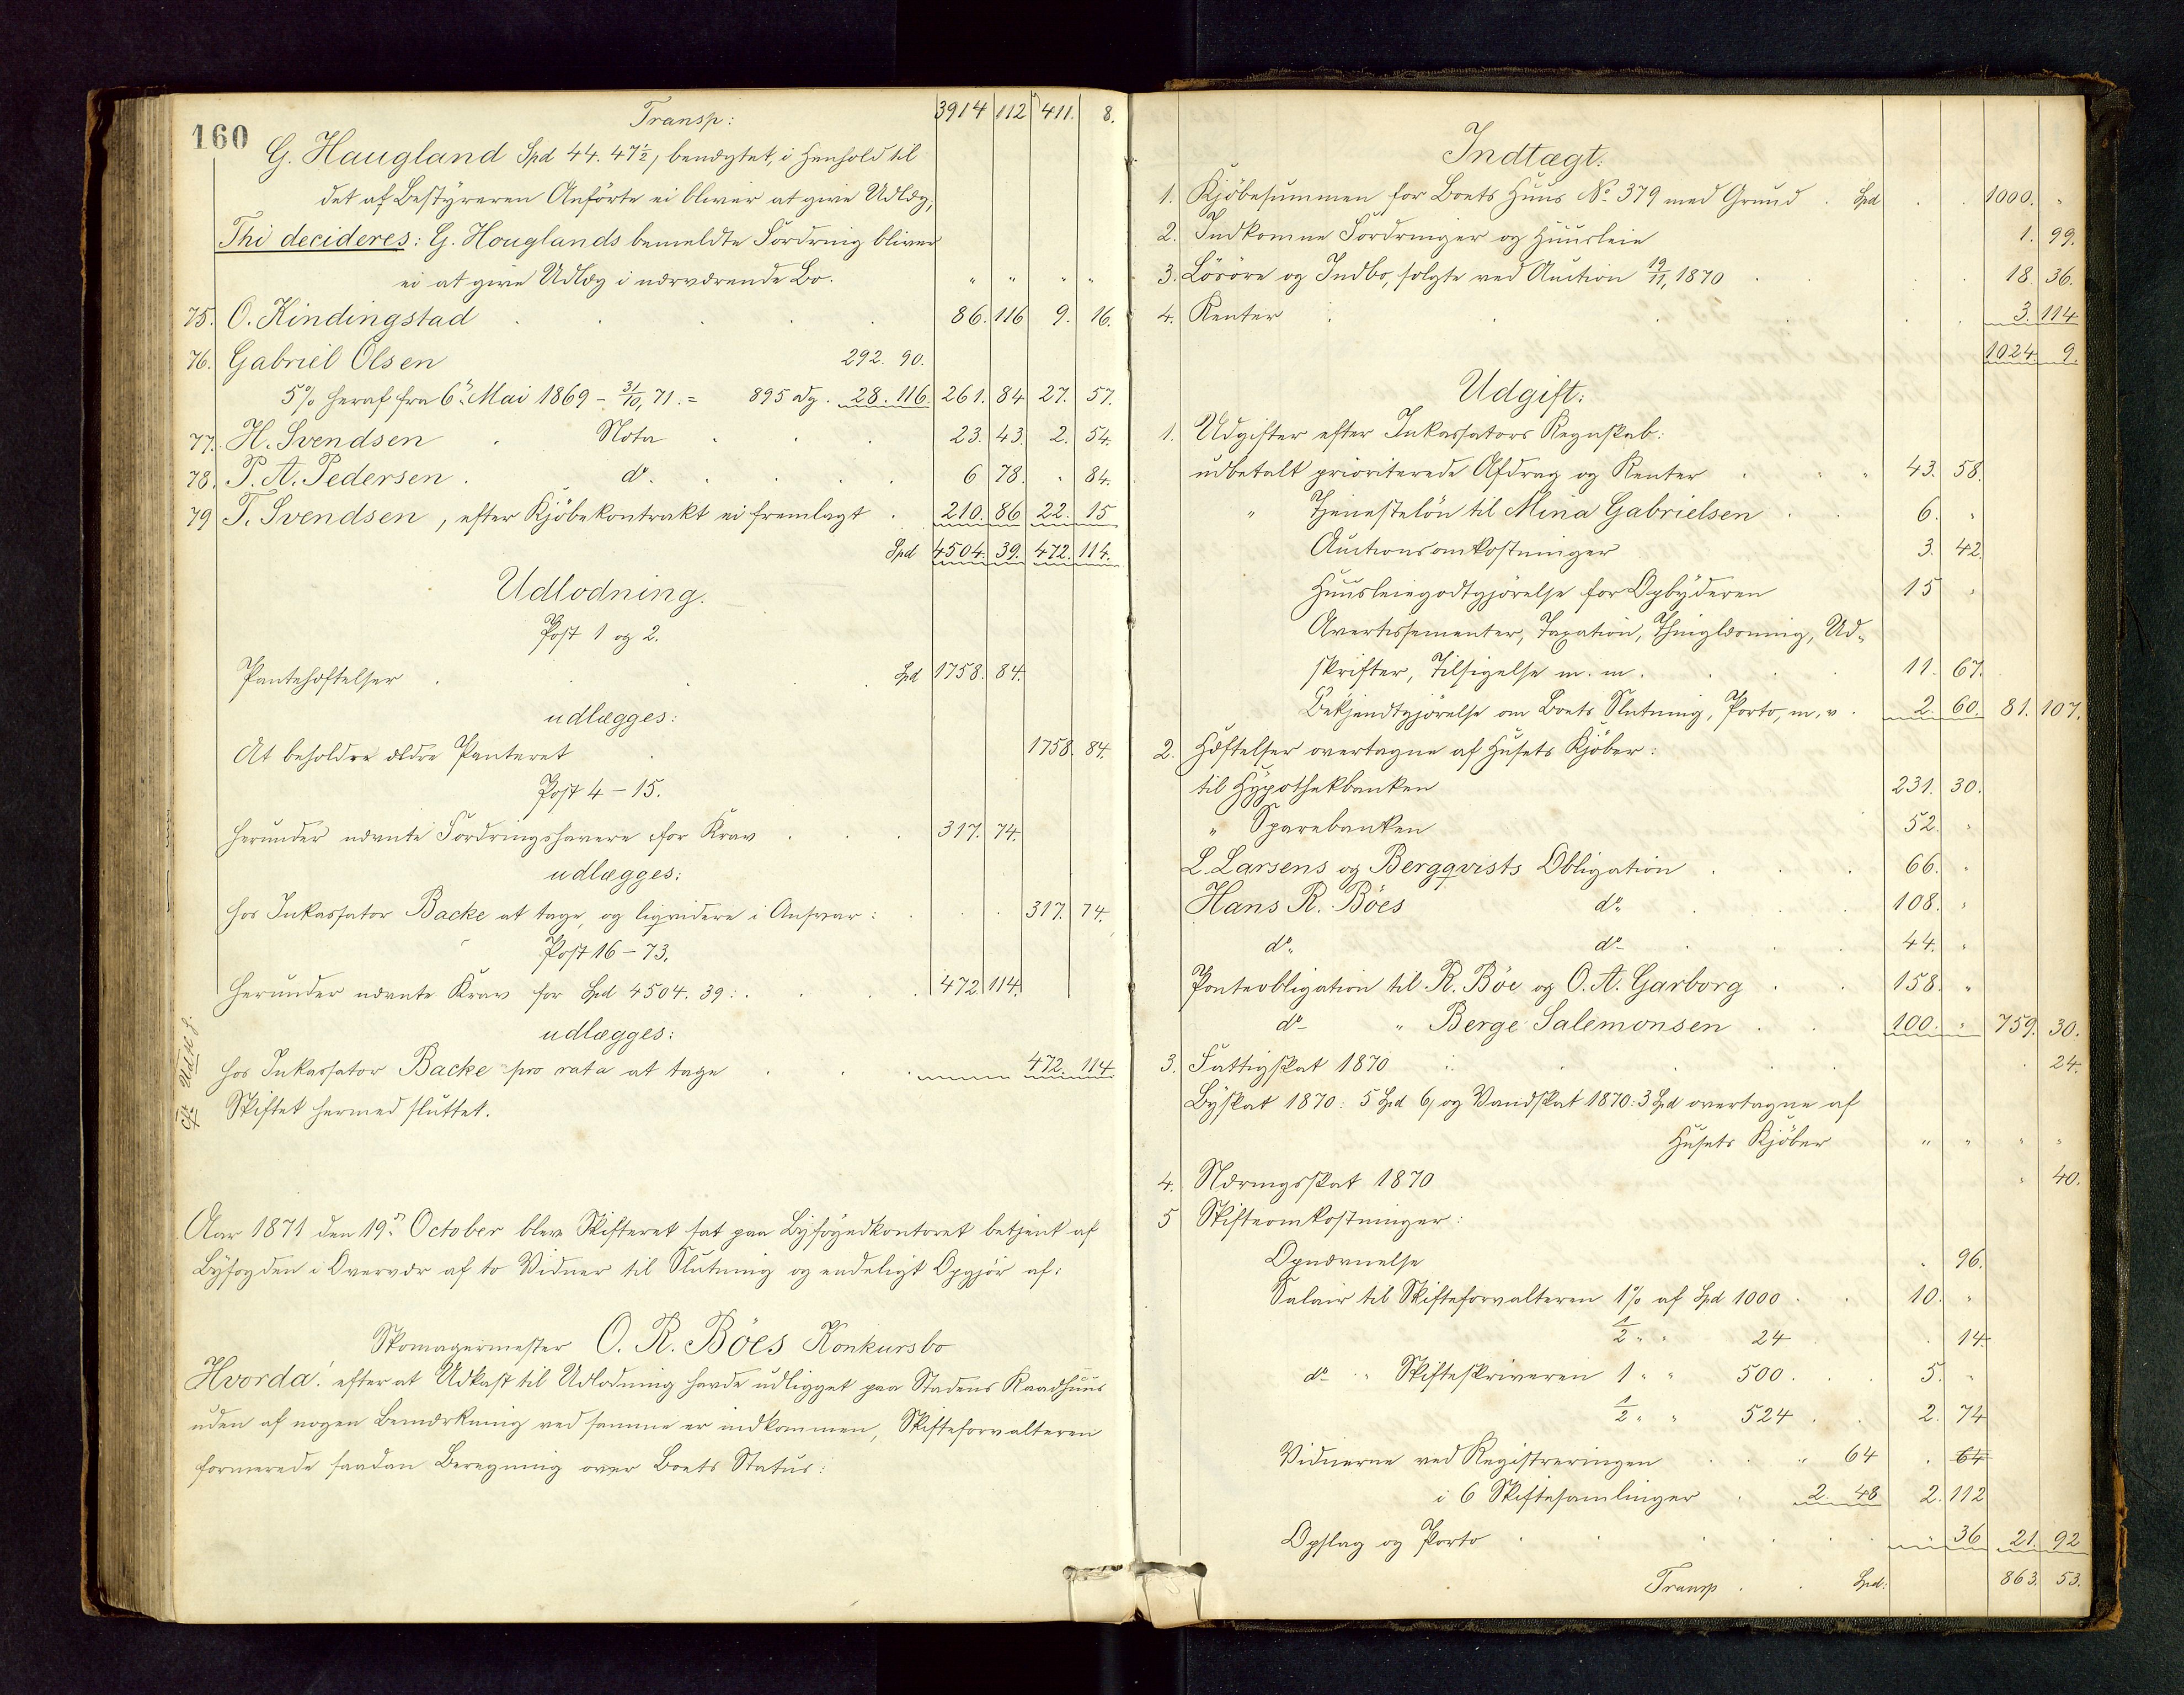 160
Transp: 3914 112 411. 8.
G. Haugland Spd 44. 47½, benægtet, i Henhold til
det af Bestyreren Anförte ei bliver at give Udlæg;
Thi decideres: G. Houglands bemeldte Fordring bliver
ei at give Udlæg i nærværende Bo. " " " "
75. O. Kindingstad 86. 116 9. 16.
76. Gabriel Olsen 292. 90.
5% heraf fra 6te Mai 1869 - 31/10, 71. = 895 Dg. 28. 116. 261. 84 27. 57.
77. H. Svendsen Nota 23. 43. 2. 54.
78. P. A. Pedersen do. 6 78. " 84.
79 T. Svendsen, efter Kjöbekontrakt ei fremlagt 210. 86 22. 15
Spd 4504. 39. 472. 114.
Udlodning.
Post 1 og 2.
Pantehæftelser Spd 1758. 84.
udlægges:
At beholdre ældre Panteret 1758. 84.
Post 4-15.
Herunder nævnte Fordringshavere for Krav 317. 74.
udlægges:
hos Inkassator Backe at tage, og liqvidere i Ansvar: 317. 74.
Post 16-73.
Herunder nævnte Krav for Spd 4504. 39: 472. 114.
udlægges:
hos Inkassator Backe pro rata at tage 472. 114
Skiftet hermed sluttet.
Aar 1871 den 19de October blev Skifteret sat paa Byfogedkontoret betjent af
Byfogden i Overvær af to Vidner til Slutning og endeligt Opgjör af:
Skomagermester O. R. Böes Konkursbo
Hvorda! efter at Udkast til Udlodning havde udligget paa Stadens Raadhuus
uden af nogen Bemærkning ved samme er indkommen, Skifteforvalteren
formerede saadan Beregning over Boets Status:
Indtægt:
1. Kjöbesummen for Boets Huus No 379 med Grund Spd 1000. "
2. Indkomne Fordringer og Huusleie 1. 99.
3. Lösöre og Indbo, solgte ved Auction 19/11, 1870 18. 36.
4. Renter 3. 114
1024. 9.
Udgift:
1. Udgifter efter Inkassators Regnskab:
udbetalt prioriterede Afdrag og Renter 43. 58.
" Tjenestelön til Mina Gabrielsen 6. "
Auctionsomkostninger 3. 42
Huusleiegodtgjörelse for Opbyderen 15 "
Avertissementer, Taxation, Thinglæsning, Ud-
skrifter, Tilsigelse m. m. 11. 67.
Bekjendtgjörelse om Boets Slutning, Porto, m, v. 2. 60. 81. 107.
2. Hæftelser overtagne af Husets Kjöber:
til Hypothekbanken 231. 30.
" Sparebanken 52. "
L. Larsens og Bergqvists Obligation 66. "
Hans R. Böes do. 108. "
do. do- 44. "
Panteobligation til R. Böe og O. A. Garborg 158. "
do- " Berge Salemonsen 100. " 759. 30.
3. Fattigskat 1870 24.
Byskat 1870: 5 Spd 6, og Vandskat 1870: 3 Spd overtagne af
Husets Kjöber " " " "
4. Næringsskat 1870 " 40.
5 Skifteomkostninger:
Opnævnelse " 96.
Salair til Skifteforvalteren 1% af Spd 1000 10. "
½ " " 24 14
do- " Skifteskriveren 1 " " 500 5. "
½ " " 524 2. 74
Vidnerne ved Registreringen " 64 . 64
i 6 Skiftesamlinger 2. 48 2. 112
Opslag og Porto " 36 21. 92
Transp Spd: 863. 53.